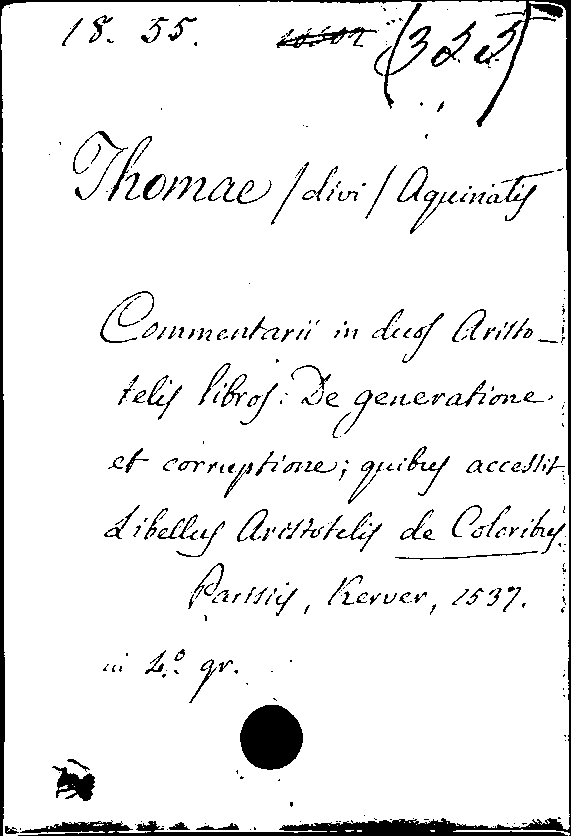 18. 55. (355)
Thomae /divi/ Aquinatis
Commentarii in duos Aristo-
telis libros: De generatione
et corruptione; quibus accessit
Libellus Aristotelis de Coloribus.
Parisiis, Kerver, 1537.
in 4.º gr.